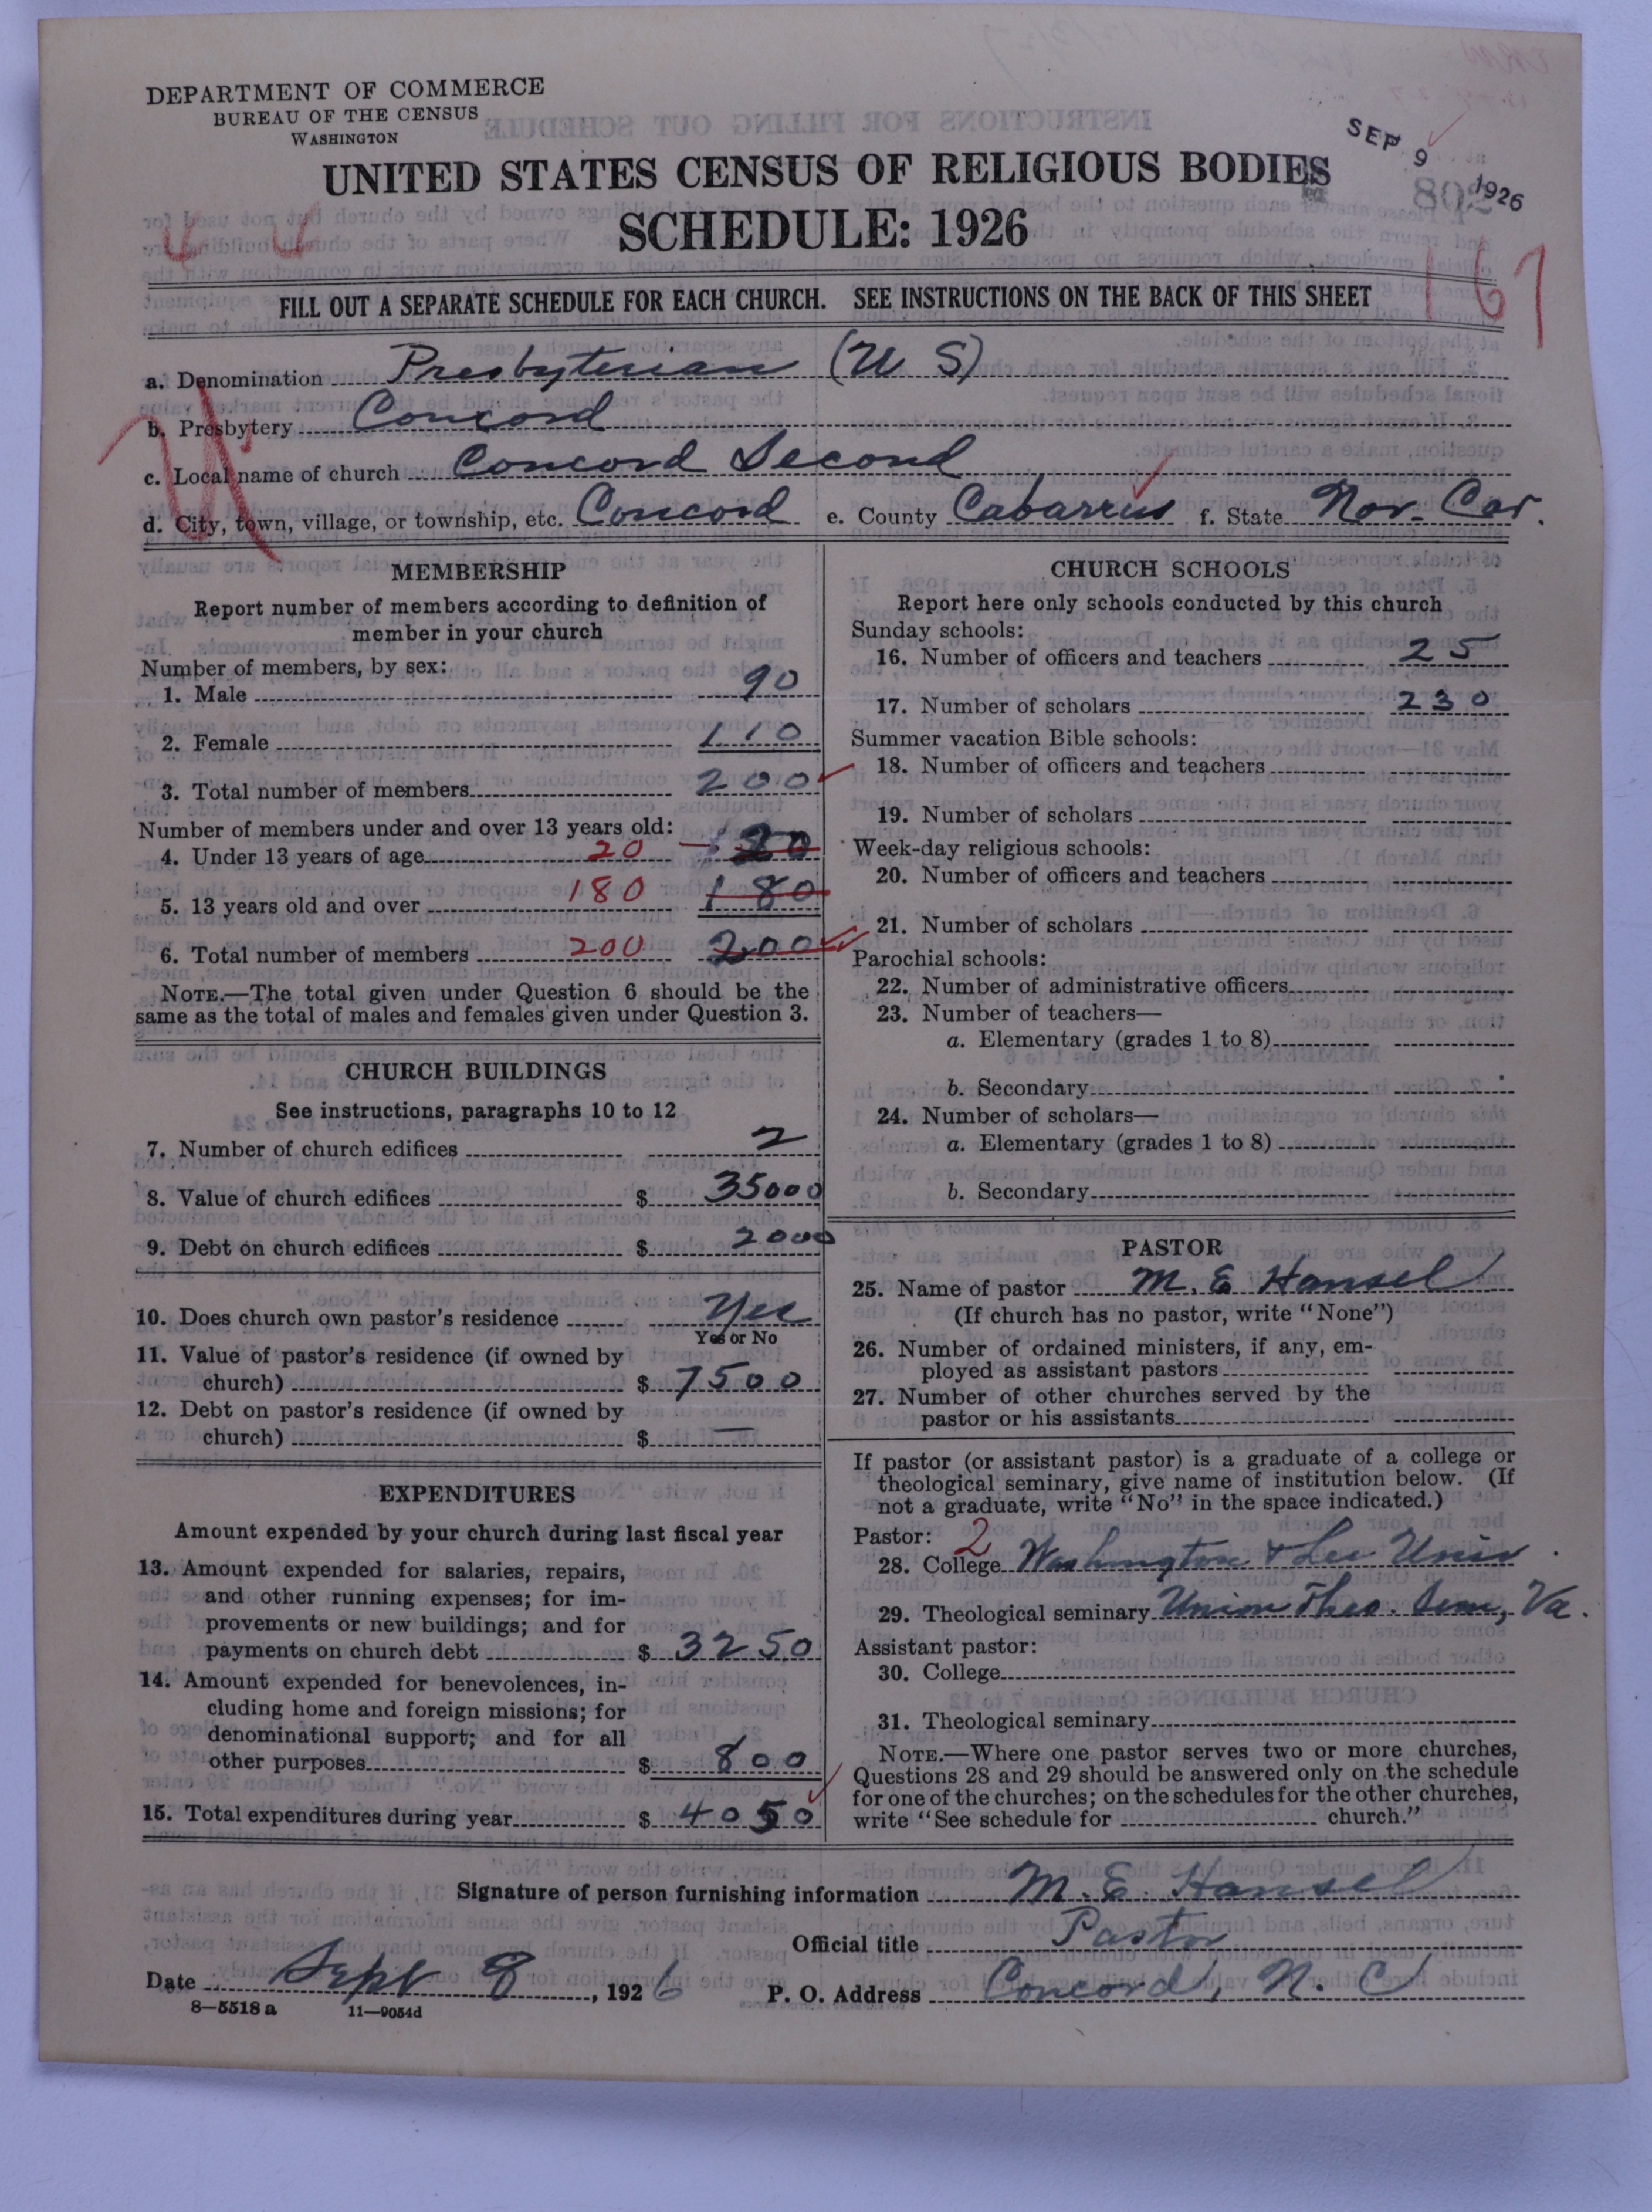 DEPARTMENT OF COMMERCE
BUREAU OF THE CENSUS
WASHINGTON
SEP 9 1926
802
UNITED STATES CENSUS OF RELIGIOUS BODIES
SCHEDULE: 1926
167
FILL OUT A SEPARATE SCHEDULE FOR EACH CHURCH. SEE INSTRUCTIONS ON THE BACK OF THIS SHEET
a. Denomination Presbyterian (U S)
b. Presbytery Concord
c. Local name of church Concord Second
d. City, town, village, or township, etc. Concord e. County Cabarrus f. State Nor. Car.
MEMBERSHIP
Report number of members according to definition of
member in your church
Number of members, by sex:
1. Male 90
2. Female 110
3. Total number of members 200
Number of members under and over 13 years old:
4. Under 13 years of age 20 20
5. 13 years old and over 180 180
6. Total number of members 200 200
NOTE.—The total given under Question 6 should be the
same as the total of males and females given under Question 3.
CHURCH BUILDINGS
See instructions, paragraphs 10 to 12
7. Number of church edifices 2
8. Value of church edifices $ 35000
9. Debt on church edifices $ 2000
10. Does church own pastor's residence Yes
Yes or No
11. Value of pastor's residence (if owned by
church) $ 7500
12. Debt on pastor's residence (if owned by
church) $ —
EXPENDITURES
Amount expended by your church during last fiscal year
13. Amount expended for salaries, repairs,
and other running expenses; for im-
provements or new buildings; and for
payments on church debt $ 3250
14. Amount expended for benevolences, in-
cluding home and foreign missions; for
denominational support; and for all
other purposes $ 800
15. Total expenditures during year $ 4050
CHURCH SCHOOLS
Report here only schools conducted by this church
Sunday schools:
16. Number of officers and teachers 25
17. Number of scholars 230
Summer vacation Bible schools:
18. Number of officers and teachers
19. Number of scholars
Week-day religious schools:
20. Number of officers and teachers
21. Number of scholars
Parochial schools:
22. Number of administrative officers
23. Number of teachers—
a. Elementary (grades 1 to 8)
b. Secondary
24. Number of scholars—
a. Elementary (grades 1 to 8)
b. Secondary
PASTOR
25. Name of pastor M. E. Hansel
(If church has no pastor, write "None")
26. Number of ordained ministers, if any, em-
ployed as assistant pastors
27. Number of other churches served by the
pastor or his assistants
If pastor (or assistant pastor) is a graduate of a college or
theological seminary, give name of institution below. (If
not a graduate, write "No" in the space indicated.)
Pastor: 2
28. College Washington & Lee Univ.
29. Theological seminary Union Theo. Sem, Va.
Assistant pastor:
30. College
31. Theological seminary
NOTE.—Where one pastor serves two or more churches,
Questions 28 and 29 should be answered only on the schedule
for one of the churches; on the schedules for the other churches,
write "See schedule for church."
Signature of person furnishing information M. E. Hansel
Official title Pastor
Date Sept 8, 1926 P. O. Address Concord, N. C
8—5518 a 11—9054d